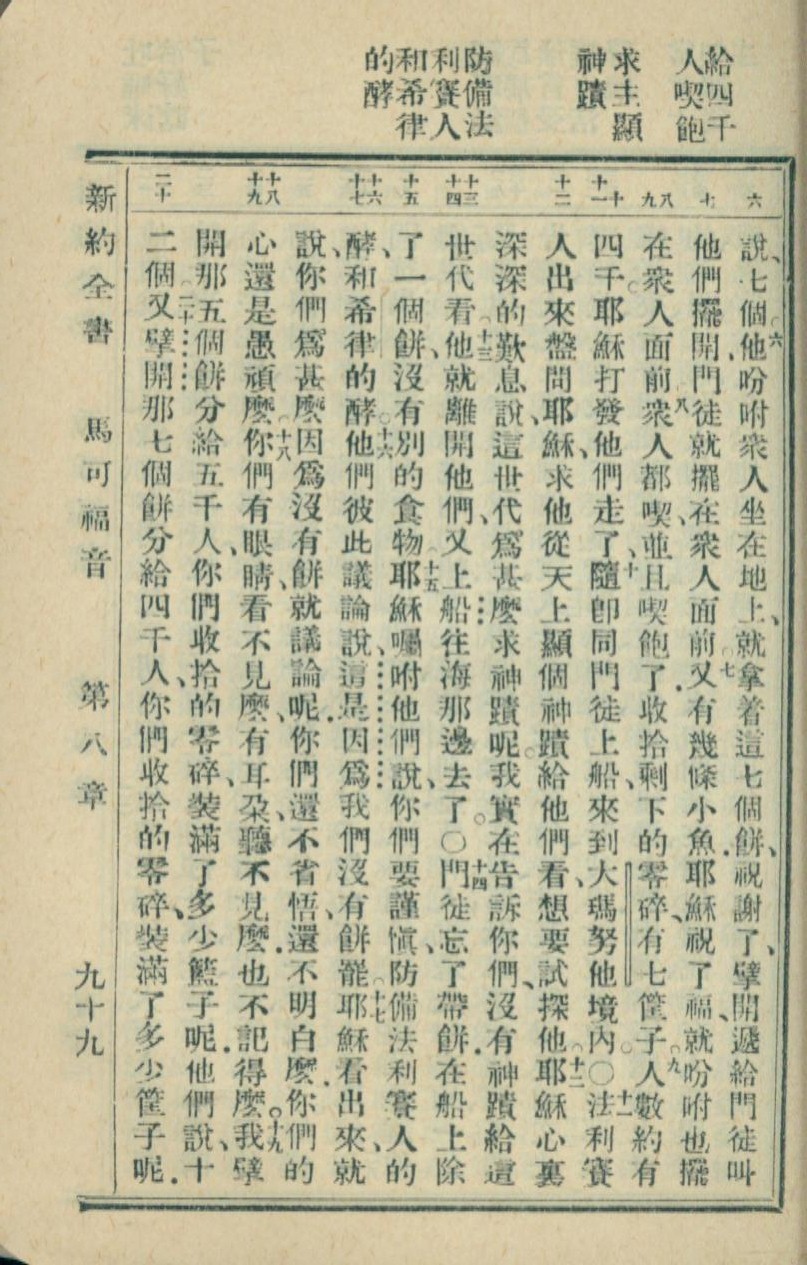 給四千
人喫飽
求主顯
神蹟
防備法
利賽人
和希律
的酵
六
七
八
九
十
十一
十二
十三
十四
十五
十六
十七
十八
十九
二十
說、七個、六他吩咐衆人坐在地上、就拿着這七個餅、祝謝了、擘開遞給門徒叫
他們擺開門徒就擺在衆人面前七又有幾條小魚．耶穌祝了福、就吩咐也擺
在衆人面前八衆人都喫、並且喫飽了．收拾剩下的零碎、有七筐子九人數約有
四千。耶穌打發他們走了、十隨卽同門徒上船、來到大瑪努他境內。〇十一法利賽
人出來盤問耶穌、求他從天上顯個神蹟給他們看、想要試探他十二耶穌心裏
深深的歎息說、這世代爲甚麽求神蹟呢。我實在告訴你們、沒有神蹟給這
世代看十三他就離開他們、又上船往海那邊去了。〇十四門徒忘了帶餅．在船上除
了一個餅、沒有別的食物十五耶穌囑咐他們說、你們要謹愼、防備法利賽人的
酵、和希律的酵十六他們彼此議論說、這是因爲我們沒有餅罷十七耶穌看出來、就
說、你們爲甚麽因爲沒有餅就議論呢．你們還不省悟、還不明白麽．你們的
心還是愚頑麽十八你們有眼睛、看不見麽、有耳朶、聽不見麽．也不記得麽。十九我擘
開那五個餅分給五千人、你們收拾的零碎、裝滿了多少籃子呢．他們說、十
二個二十又擘開那七個餅分給四千人、你們收拾的零碎、裝滿了多少筐子呢．
新約全書 馬可福音 第八章 九十九